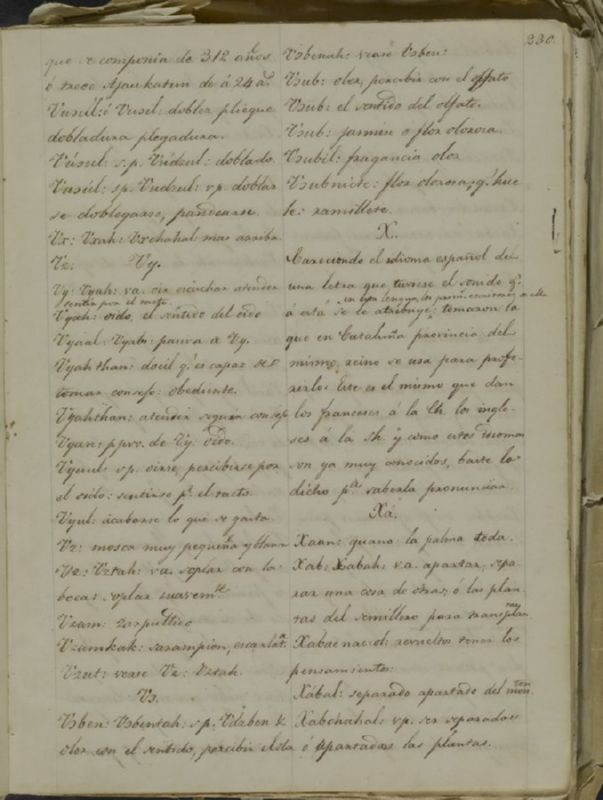 230.
que se componia de 312 años
ó trece Ajaukatun de á 24 aˢ.
Vuuɔil: ó Vuɔil: doblez pliegue
dobladura plegadura.
s.p. doblado.
sp. vp. doblar
se doblegarse, pandearse.
Vx: Vxah: mas arriba
Vz: Vy.
Vy: Vyah: va. oir escuchar atender
sentir por el tacto.
Vyah: oido, el sentido del oido
Vyaal: Vyabi: pasiva de Vy.
Vyahthan: docil q.ᵉ es capaz de
tomar consejo: obediente.
Vyahthan: atender seguir consejo
Vyan: de Vy. oido.
vp. oirse, percibirse por
el oido: sentirse pʳ. el tacto.
Vyul: acabarse lo que se gasta.
Vz: mosca muy pequeña y blanca
Vz: Vztah: va. soplar con la
boca: soplar suavemᵗᵉ.
Vzam: zarpullido
Vzamkak: sarampion, escarlatᵃ.
Vzut: vease Vz: Vztah.
Vɔ.
Vɔben: Vɔbentah: sp. Vdzben
oler con el sentido, percibir
Vɔbenah: vease Vɔben:
Vɔub: oler, percibir con el olfato
Vɔub: el sentido del olfato.
Vɔub: jasmin ó flor olorosa.
Vɔubil: fragancia olor
flor olorosa, q.ᵉ hue
le: ramillete.
X.
Careciendo el idioma español de
una letra que tuviese el sonido q.ᵉ
en esta lengua
á está se le atribuye: tomaron la
que en Cataluña provincia del
mismo reino se usa para profe-
rirlo: Este es el mismo que dan
los franceses á la Ch. los ingle-
ses á la Sh. y como estos idiomas
son ya muy conocidos, baste lo
dicho pᵃ. saberla pronunciar.
Xa.
Xaan: guano: la palma toda.
Xab: Xabah: va. apartar, sepa-
rar una cosa de otras, ó las plan
tas del semillero para transplan
tar
revueltos tener los
pensamientos:
Xabal: separado apartado del mon
ton
vp. ser separadas
ó apartadas las plantas.